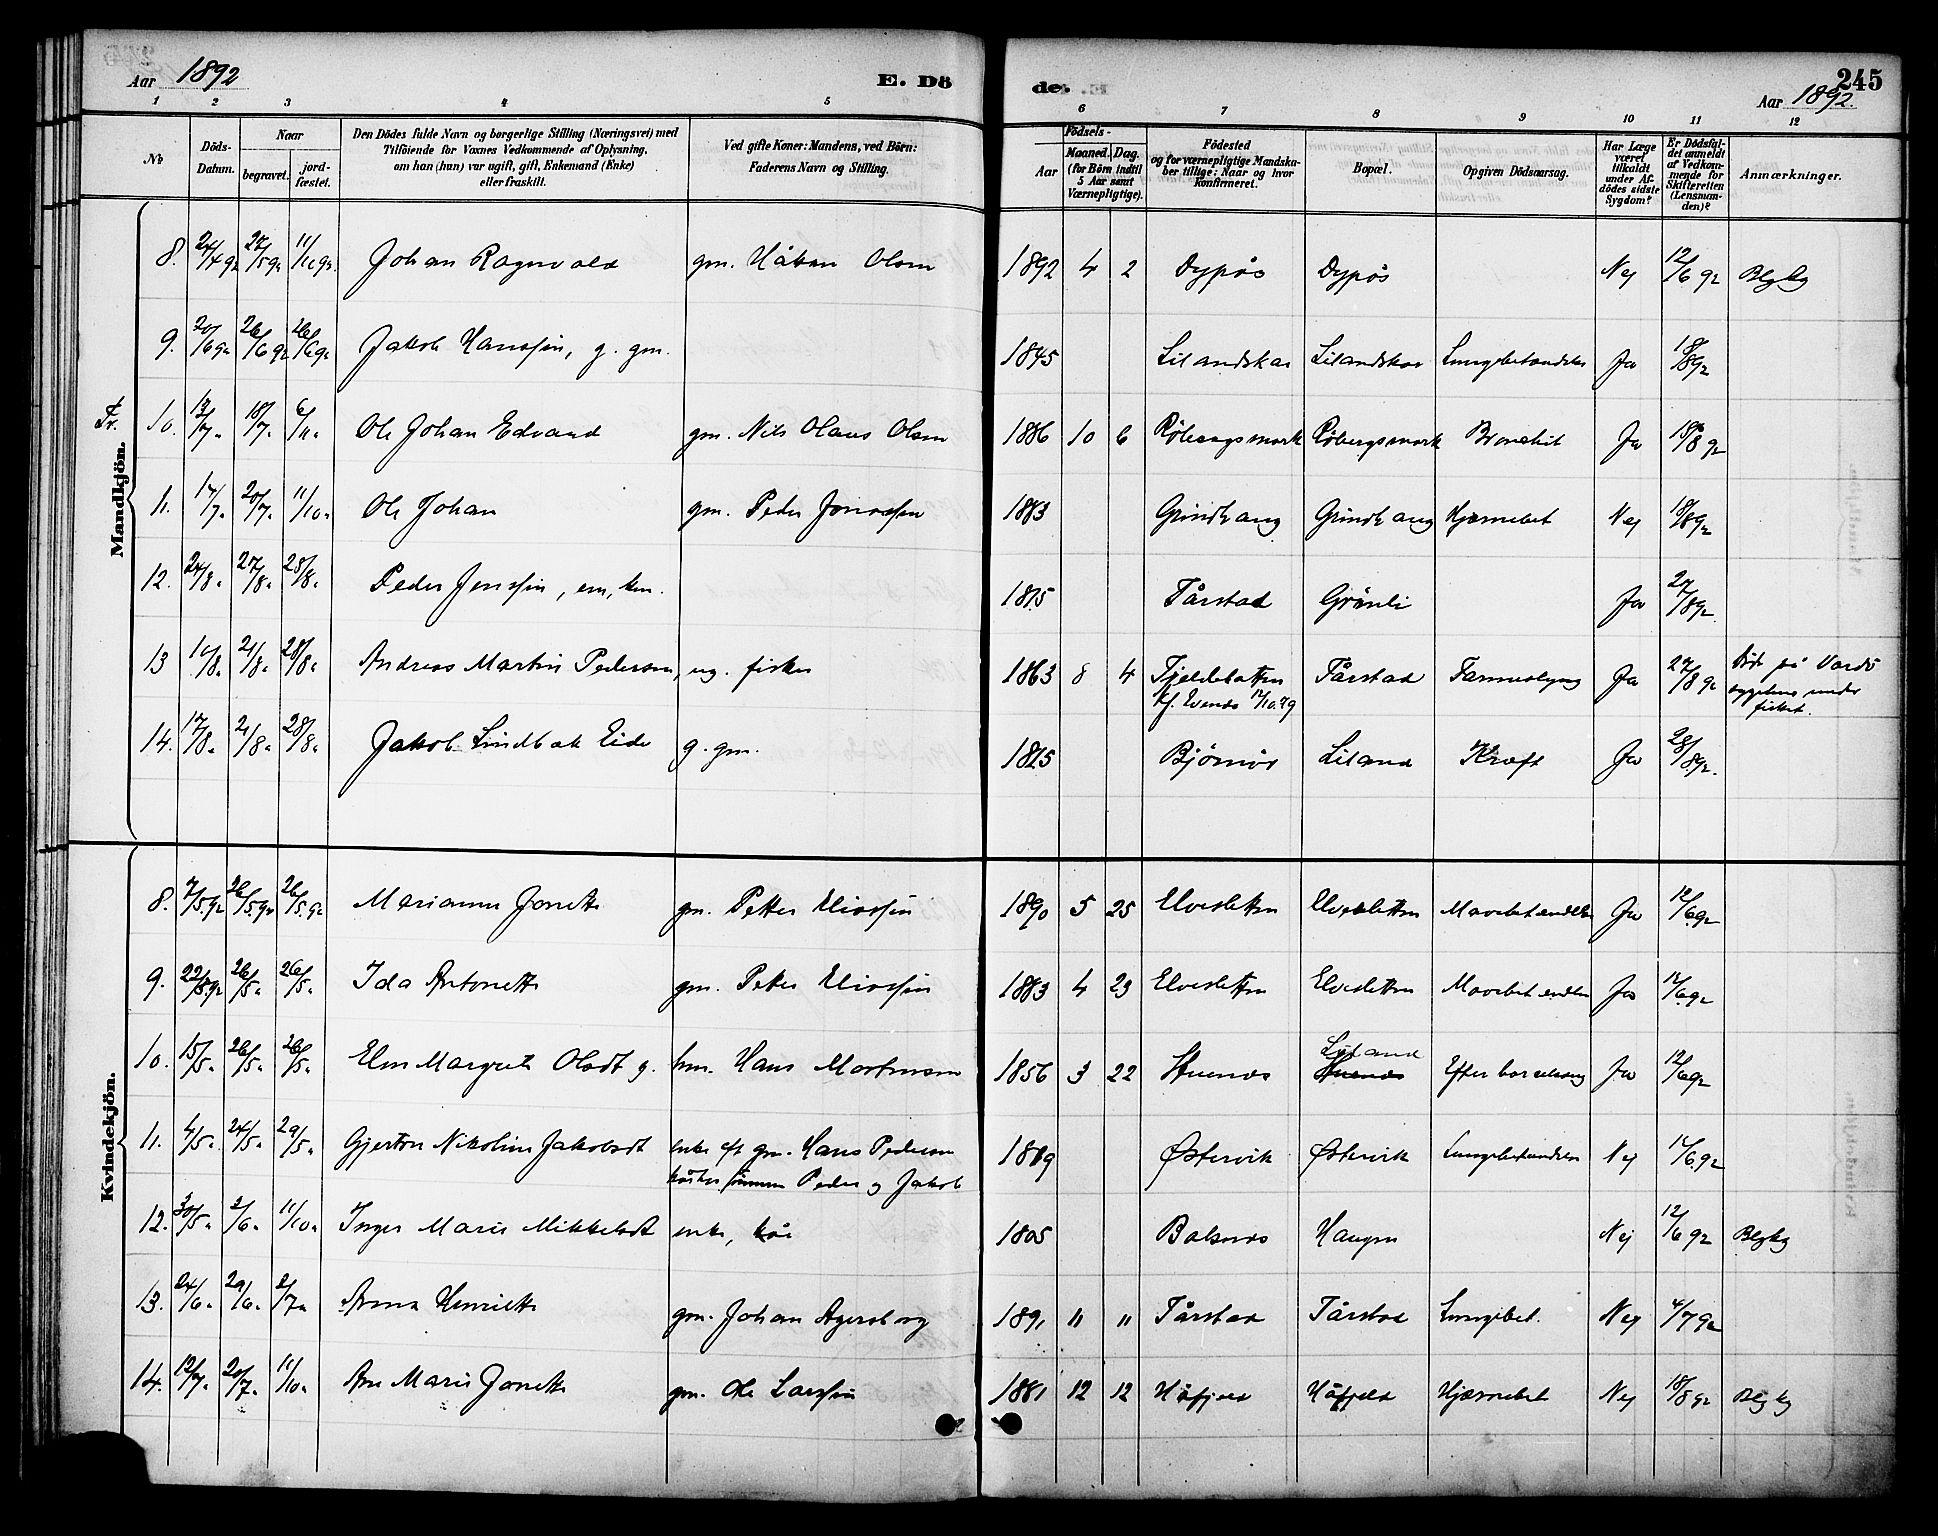 Aar 1892
E. Dö
de.
245
Aar 1892.
1 2 3 4 5 6 7 8 9 10 11 12
No
Döds-Datum.
Naar
begravet.
jord-fæstet.
Den Dödes fulde Navn og borgerlige Stilling (Næringsvei) med
Tilföiende for Voxnes Vedkommende af Oplysning,
om han (hun) var ugift, gift, Enkemand (Enke)
eller fraskilt.
Ved gifte Koner: Mandens, ved Börn:
Faderens Navn og Stilling.
Födsels-
Aar
Maaned. Dag.
(for Börn indtil
5 Aar samt
Værnepligtige).
Födested
og for værnepligtige Mandska-
ber tillige: Naar og hvor
konfirmeret.
Bopæl.
Opgiven Dödsaarsag.
Har Læge
været
tilkaldt
under Af-
dödes sidste
Sygdom?
Er Dødsfal-
det anmeldt
af Vedkom-
mende for
Skifteretten
(Lensman-
den)?
Anmærkninger.
Mandkjön.
8. 24/4 92 27/5 92 11/10 92. Johan Ragnvald gm. Håkan Olsen 1892 4 2 Dypås Dypås Nej 12/6 92
9. 20/6 92 26/6 92 26/6 92 Jakob Hanssen, g. gm. 1845 Lilandskar Lilandskar Lungebetændelse Ja 18/8 92
10. 13/7 18/7 6/11 Ole Johan Edvard gm. Nils Olaus Olsen 1886 10 6 Røbergsmark Ja 18/8 92
11. 17/7 20/7 11/10 Ole Johan gm. Peder Jonassen 1883 Grindhaug Grindhaug Hjernebet Nej 18/8 92
12. 24/8 27/8 28/8 Peder Jenssen, em, 1815 Tårstad Grønli Ja 27/8 92.
13 10/8 21/8 28/8 Andreas Martin Pedersen, ug. fisker 1863 8 4 Fjeldebotten Tårstad Ja 27/8 92 Døde på Vardø
Kf. Evenes 12/10.79 sygehus under
fisket.
14. 17/8 21/8 28/8 Jakob Lindbak Eide g. gm. 1825 Bjørnør Liland Kræft Ja 28/8 92.
Kvindekjön.
8. 7/5 92 26/5 92 26/5 92 Marianne Jonette gm. Petter Eliassen 1890 5 25 Elvesletten Elvesletten Mavebetændelse Ja 12/6 92
9. 22/5 92 26/5 26/5 Ida Antonette gm. Petter Eliassen 1883 4 23 Elvesletten Elvesletten Mavebetændelse Ja 12/6 92
10. 15/5 26/5 26/5 Elen Margrete Olsdt g. hm. Hans Mortensen 1856 3 22 Stuenes Liland Efter barselseng Ja 12/6 92
11. 4/5 24/5 29/5 Gjertru Nikoline Jakobsdt enke eft gm. Hans Pedersen 1819 Østervik Østervik Lungebetændelse Nej 12/6 92
sønnen Peder og Jakob
12. 30/5 2/6 11/10 Inger Marie Mikkelsdt enke, kår 1805 Balsnes Haugen Nej 12/6 92
13. 24/6 29/6 2/7 Anna Henriette gm. Johan Agersborg 1891 11 11 Tårstad Tårstad Lungebet. Nej 4/7 92
14. 12/7 20/7 11/10 Ane Marie Jonette gm. Ole Larssen 1881 12 12 Håfjeld Håfjeld Hjernebet Nej 18/8 92